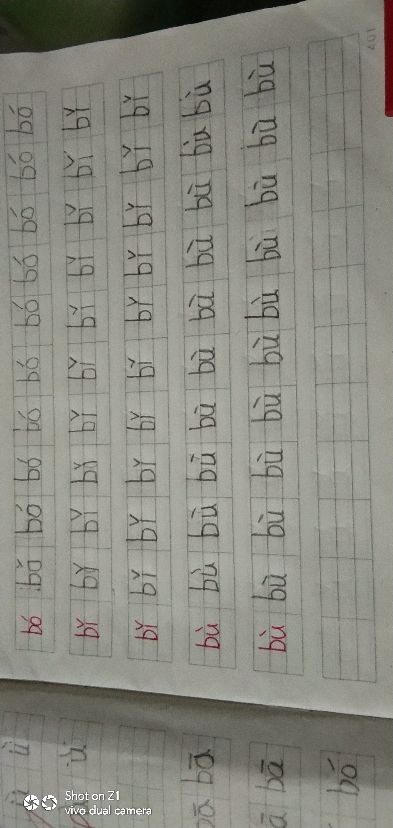 bó bǒ bó bó bó bó bó bó bó bó bó
bǐ bǐ bǐ bǐ bǐ bǐ bǐ bǐ bǐ bǐ bǐ
bǐ bǐ bǐ bǐ bǐ bǐ bǐ bǐ bǐ bǐ bǐ
bù bù bū bū bù bù bū bù bū bù bù
bù bù bù bù bù bù bù bù bù bù bù
bā
bā
bó
Shot on Z1
vivo dual camera